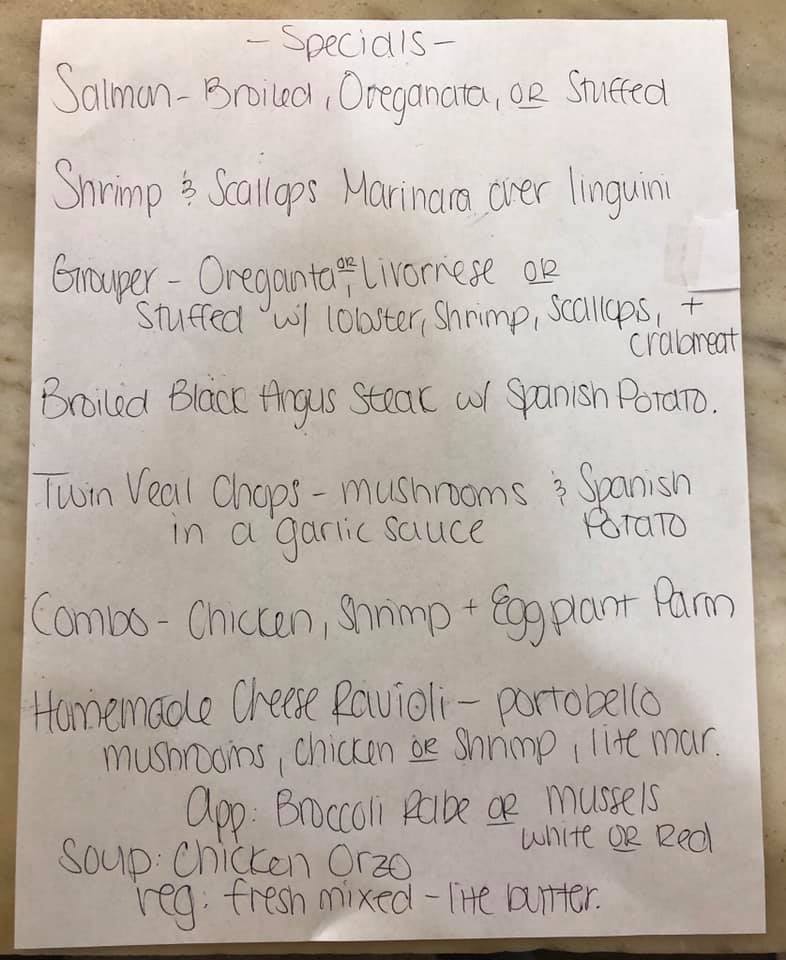 - Specials -
Salmon - Broiled, Oreganata, OR Stuffed
Shrimp & Scallops Marinara over linguini
Grouper - Oreganta, OR Livornese OR
Stuffed w/ lobster, Shrimp, Scallops, +
crabmeat
Broiled Black Angus Steak w/ Spanish Potato.
Twin Veal Chops - mushrooms & Spanish
in a garlic sauce Potato
Combo - Chicken, Shrimp + Eggplant Parm
Homemade Cheese Ravioli - portobello
mushrooms, chicken OR Shrimp, lite mar.
app: Broccoli Rabe OR mussels
white OR Red
Soup: Chicken Orzo
veg: fresh mixed - lite butter.